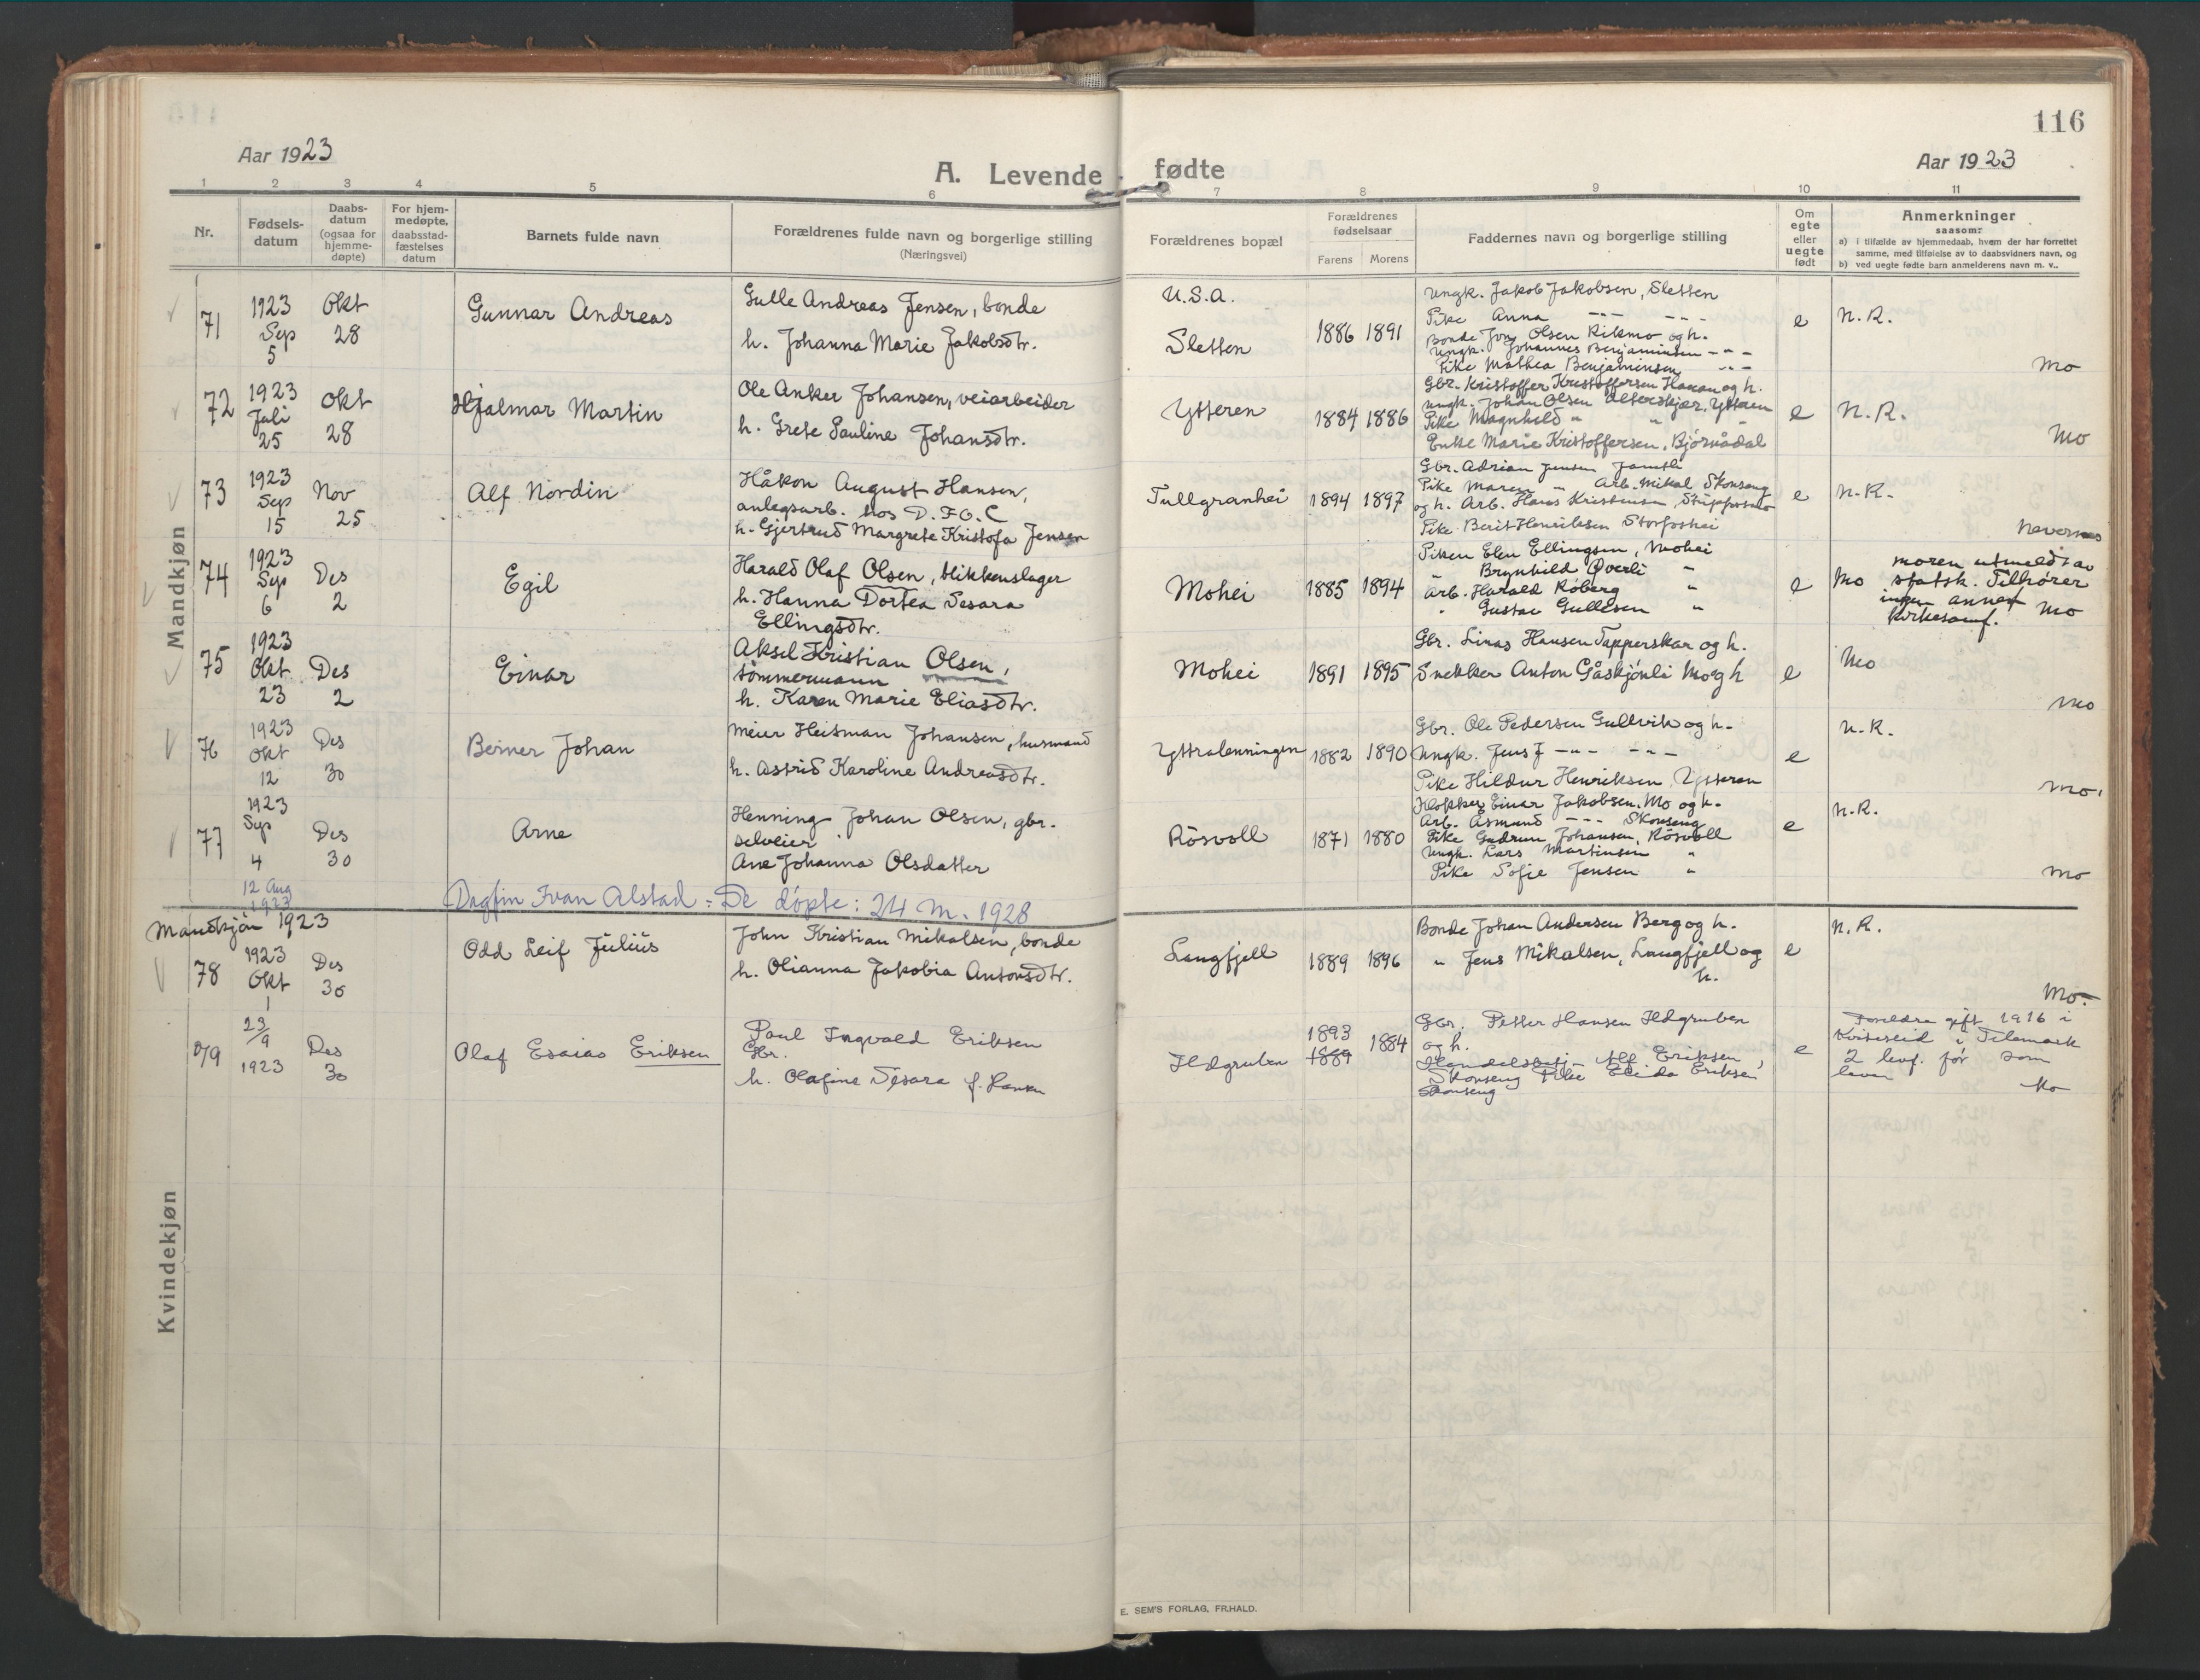 116
Aar 1923
A. Levende fødte
Aar 1923
1 2 3 4 5 6 7 8 9 10 11
Nr.
Fødsels-
datum
Daabs-
datum
(ogsaa for
hjemme-
døpte)
For hjem-
medøpte,
daabsstad-
fæstelses
datum
Barnets fulde navn
Forældrenes fulde navn og borgerlige stilling
(Næringsvei)
Forældrenes bopæl
Forældrenes
fødselsaar
Farens Morens
Faddernes navn og borgerlige stilling
Om
egte
eller
uegte
født
Anmerkninger
saasom:
a) i tilfælde av hjemmedaab, hvem der har forrettet
samme, med tilføielse av to daabsvidners navn, og
b) ved uegte fødte barn anmelderens navn m. v..
Mandkjøn
71
1923
Sep
5
Okt
28
Gunnar Andreas
Gulle Andreas Jensen, bonde
h. Johanna Marie Jakobsdtr.
U.S.A.
Sletten
1886 1891
Ungk. Jakob Jakobsen, Sletten
Pike Anna -"- -"-
Bonde Jon Olsen Rikmo og h.
Ungk. Johannes Benjaminsen -"-
Pike Mathea Benjaminsen -"-
e
N.R.
Mo
72
1923
Juli
25
Okt
28
Hjalmar Martin
Ole Anker Johansen, veiarbeider
h. Grete Pauline Johansdtr.
Ytteren
1884 1886
Gbr. Kristoffer Kristoffersen Hauan og h.
Ungk. Johan Olsen Alterskjær, Ytteren
Pike Magnhild " " "
Enke Marie Kristoffersen, Bjørnådal
e
N.R.
Mo
73
1923
Sep
15
Nov
25
Alf Nordin
Håkon August Hansen,
anlegsarb. hos D.F.G.C
h. Gjertrud Margrete Kristofa Jensen
Tullgranhei
1894 1897
Gbr. Adrian Jensen Jamtli
Pike Maren " Arb. Mikal Skonseng
og h. Arb. Hans Kristensen
Pike Berit Henriksen Storfoshei
e
N.R.
Nevernes
74
1923
Sep
6
Des
2
Egil
Harald Olaf Olsen, blikkenslager
h. Hanna Dortea Sesara
Ellingsdtr.
Mohei
1885 1894
Piken Elen Ellingsen, Mohei
" Brynhild Øverli "
Arb. Harald Røberg "
" Gustav Gullesen "
e
Mo
moren utmeldt av
statsk. Tilhører
ingen annet
kirkesamf.
Mo
75
1923
Okt
23
Des
2
Einar
Aksel Kristian Olsen,
tømmermann
h. Karen Marie Eliasdtr.
Mohei
1891 1895
Gbr. Linas Hansen Tapperskar og h.
Snekker Anton Gåskjønli Mo og h
e
Mo
Mo
76
1923
Okt
12
Des
30
Berner Johan
Meier Heitman Johansen, husmand
h. Astrid Karoline Andreasdtr.
Yttralenningen
1882 1890
Gbr. Ole Pedersen Gullvik og h.
Ungk. Jens J -"- -"-
Pike Hildur Henriksen, Ytteren
e
N.R.
Mo
77
1923
Sep
4
Des
30
Arne
Henning Johan Olsen, gbr.
selveier
Ane Johanna Olsdatter
Røsvoll
1871 1880
Klokker Einar Jakobsen, Mo og h.
Arb. Åsmund -"- Skonseng
Pike Gudrun Johansen, Røsvoll
Ungk. Lars Martinsen "
Pike Sofie Jensen "
e
N.R.
Mo
12 Aug
1923
Dagfin Ivan Alstad: Se døpte: 24 M. 1928
Mandkjøn 1923
78
1923
Okt
1
Des
30
Odd Leif Juliüs
John Kristian Mikalsen, bonde
h. Olianna Jakobia Antonsdtr.
Langfjell
1889 1896
Bonde Johan Andersen Berg og h.
" Jens Mikalsen, Langfjell og
h.
e
N.R.
Mo.
79
23/9
1923
Des
30
Olaf Esaias Eriksen
Paul Ingvald Eriksen
Gbr.
h. Olafine Sesara f. Hansen
Ildgruben
1893
1889
1884
Gbr. Petter Hansen Ildgruben
og h.
Handelsbetj. Alf Eriksen,
Skonseng Pike Elida Eriksen
Skonseng
e
Foreldre gift 1916 i
Kviteseid i Telemark
2 levf. før som
lever
Mo
Kvindekjøn
E. SEM'S FORLAG, FR.HALD.